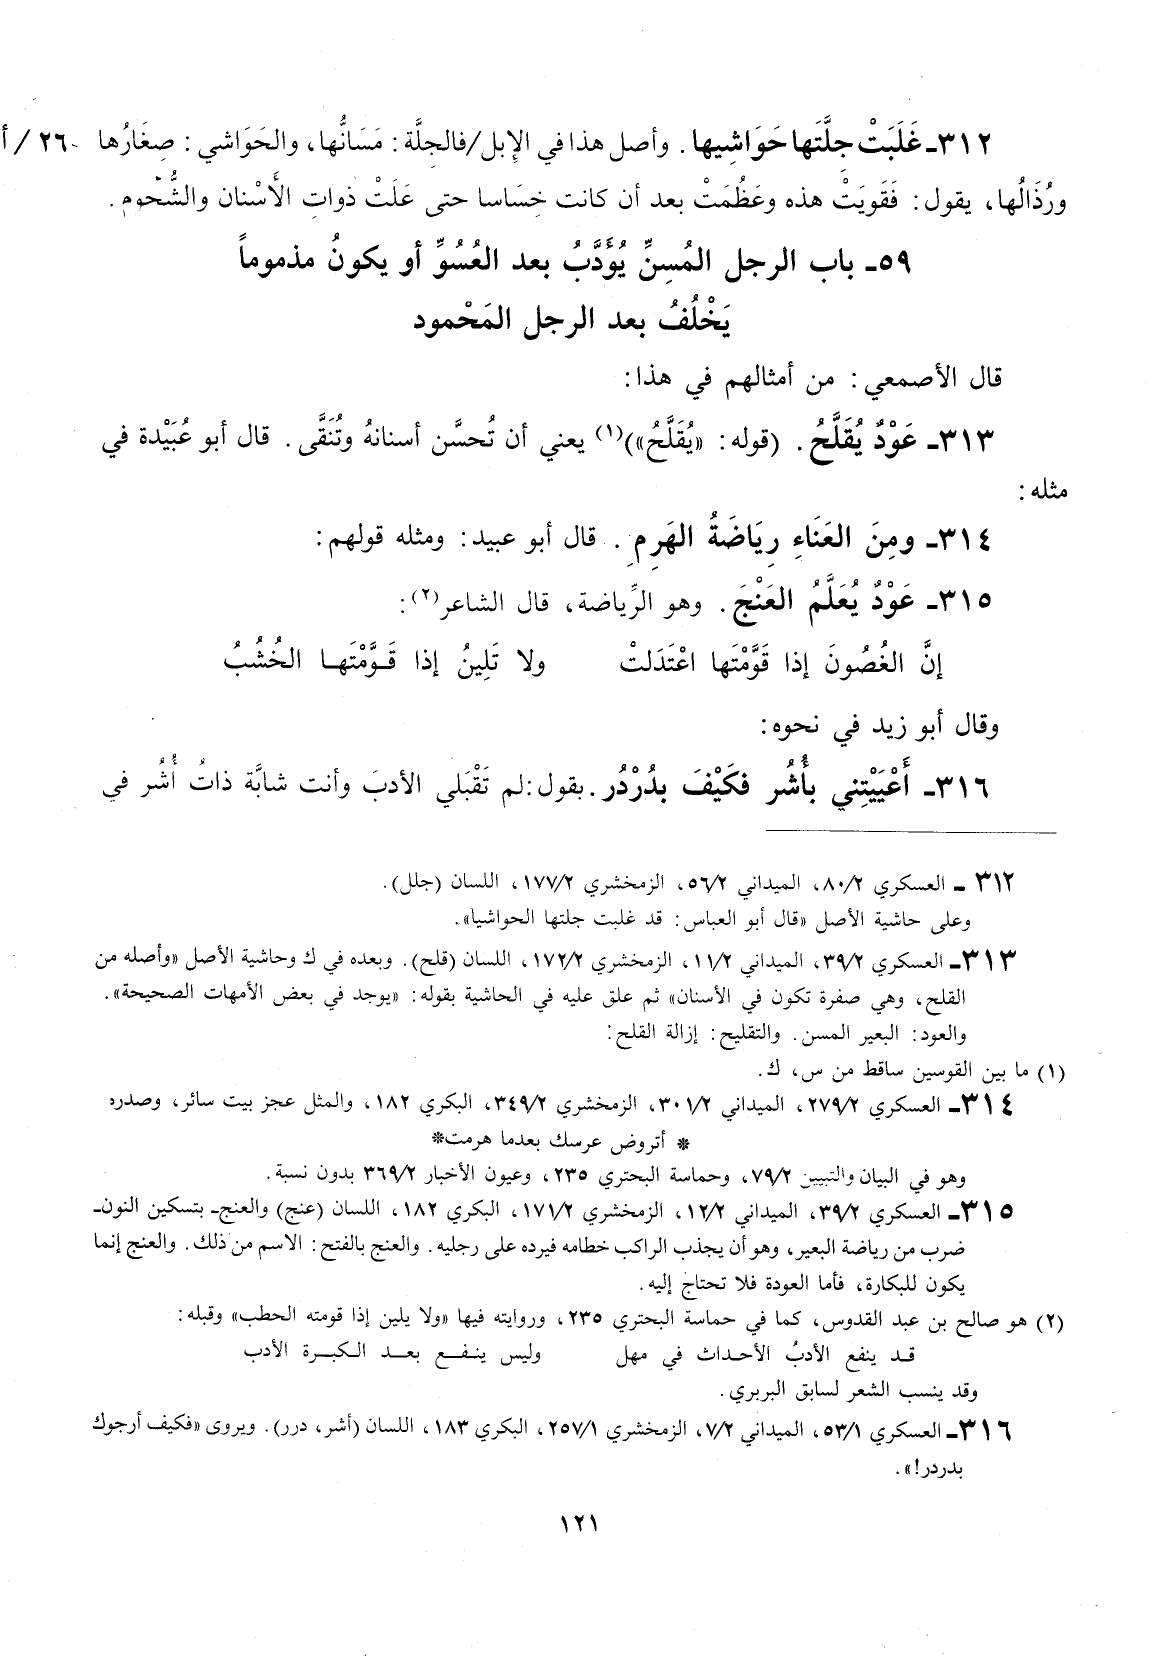 ٣١٢ـ غَلَبَتْ جِلَّتَها حَوَاشِيها . وأصل هذا في الإِبل/فالجِلَّة : مَسَانُّها، والحَوَاشي : صِغَارُها ٢٦٠ / أ
ورُذَالُها، يقول: فَقَوِيَتْ هذه وعَظُمَتْ بعد أن كانت خِسَاسا حتى عَلَتْ ذواتِ الأَسْنان والشُّحوم .
٥٩ـ باب الرجل المُسِنِّ يُؤَدَّبُ بعد العُسُوِّ أو يكونُ مذموماً
يَخْلُفُ بعد الرجل المَحْمود
قال الأصمعي: من أمثالهم في هذا:
٣١٣ـ عَوْدٌ يُقَلَّحُ . (قوله: «يُقَلَّحُ»)(١) يعني أن تُحسَّن أسنانهُ وتُنَقَّى. قال أبو عُبَيْدة في
مثله:
٣١٤ـ ومِنَ العَنَاءِ رِيَاضَةُ الهَرِمِ . قال أبو عبيد: ومثله قولهم:
٣١٥ـ عَوْدٌ يُعَلَّمُ العَنْجَ . وهو الرِّياضة، قال الشاعر(٢):
إنَّ الغُصُونَ إذا قَوَّمْتَها اعْتَدَلتْ ولا تَلِينُ إذا قَوَّمْتَها الخُشُبُ
وقال أبو زيد في نحوه:
٣١٦ـ أَعْيَيْتِني بأُشُر فكَيْفَ بدُرْدُر . يقول: لم تَقْبَلي الأدبَ وأنت شابَّة ذاتُ أُشُر في
٣١٢ ـ العسكري ٨٠/٢، الميداني ٥٦/٢، الزمخشري ١٧٧/٢، اللسان (جلل).
وعلى حاشية الأصل «قال أبو العباس: قد غلبت جلتها الحواشيا».
٣١٣ـ العسكري ٣٩/٢، الميداني ١١/٢، الزمخشري ١٧٢/٢، اللسان (قلح). وبعده في ك وحاشية الأصل «وأصله من
القلح، وهي صفرة تكون في الأسنان» ثم علق عليه في الحاشية بقوله: «يوجد في بعض الأمهات الصحيحة».
والعود: البعير المسن. والتقليح: إزالة القلح:
(١) ما بين القوسين ساقط من س، ك.
٣١٤ـ العسكري ٢٧٩/٢، الميداني ٣٠١/٢، الزمخشري ٣٤٩/٢، البكري ١٨٢، والمثل عجز بيت سائر، وصدره
* أتروض عرسك بعدما هرمت*
وهو في البيان والتبيين ٧٩/٢، وحماسة البحتري ٢٣٥، وعيون الأخبار ٣٦٩/٢ بدون نسبة.
٣١٥ـ العسكري ٣٩/٢، الميداني ١٢/٢، الزمخشري ١٧١/٢، البكري ١٨٢، اللسان (عنج) والعنج ـ بتسكين النون ـ
ضرب من رياضة البعير، وهو أن يجذب الراكب خطامه فيرده على رجليه. والعنج بالفتح: الاسم من ذلك. والعنج إنما
يكون للبكارة، فأما العودة فلا تحتاج إليه.
(٢) هو صالح بن عبد القدوس، كما في حماسة البحتري ٢٣٥، وروايته فيها «ولا يلين إذا قومته الحطب» وقبله:
قد ينفع الأدبُ الأحداث في مهل وليس ينفع بعد الكبرة الأدب
وقد ينسب الشعر لسابق البربري.
٣١٦ـ العسكري ٥٣/١، الميداني ٧/٢، الزمخشري ٢٥٧/١، البكري ١٨٣، اللسان (أشر، درر). ويروى «فكيف أرجوك
بدردر!».
١٢١